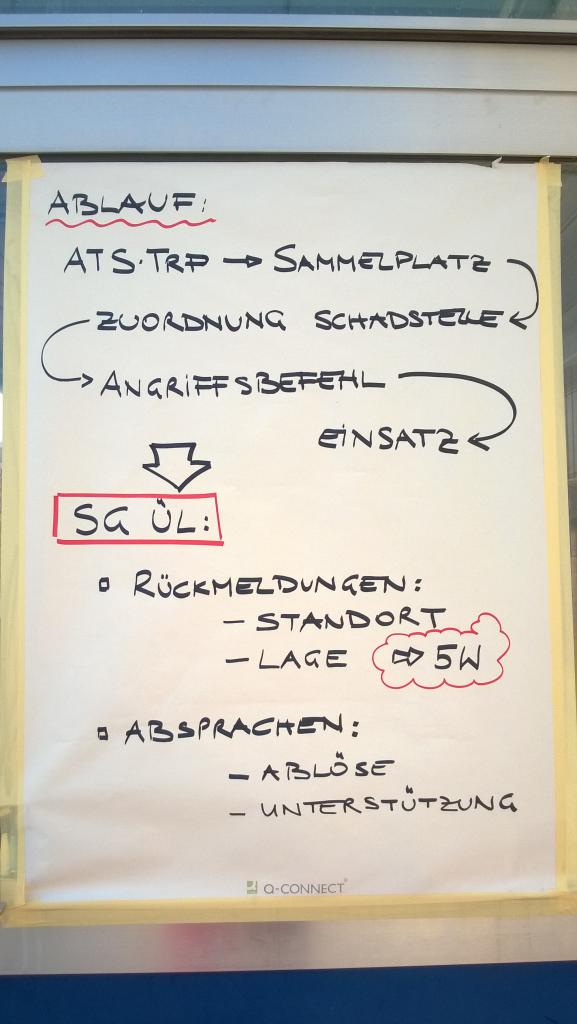 ABLAUF:
ATS-TRP → SAMMELPLATZ
ZUORDNUNG SCHADSTELLE
ANGRIFFSBEFEHL
EINSATZ
SG ÜL:
RÜCKMELDUNGEN:
- STANDORT
- LAGE ⇨ 5W
ABSPRACHEN:
- ABLÖSE
- UNTERSTÜTZUNG
Q-CONNECT®